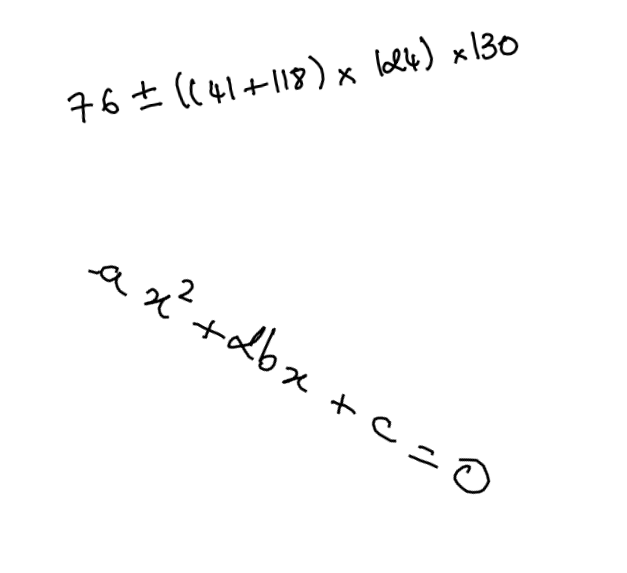 76 ± ((41+118) × 124) ×130
ax²+2bx + c = 0